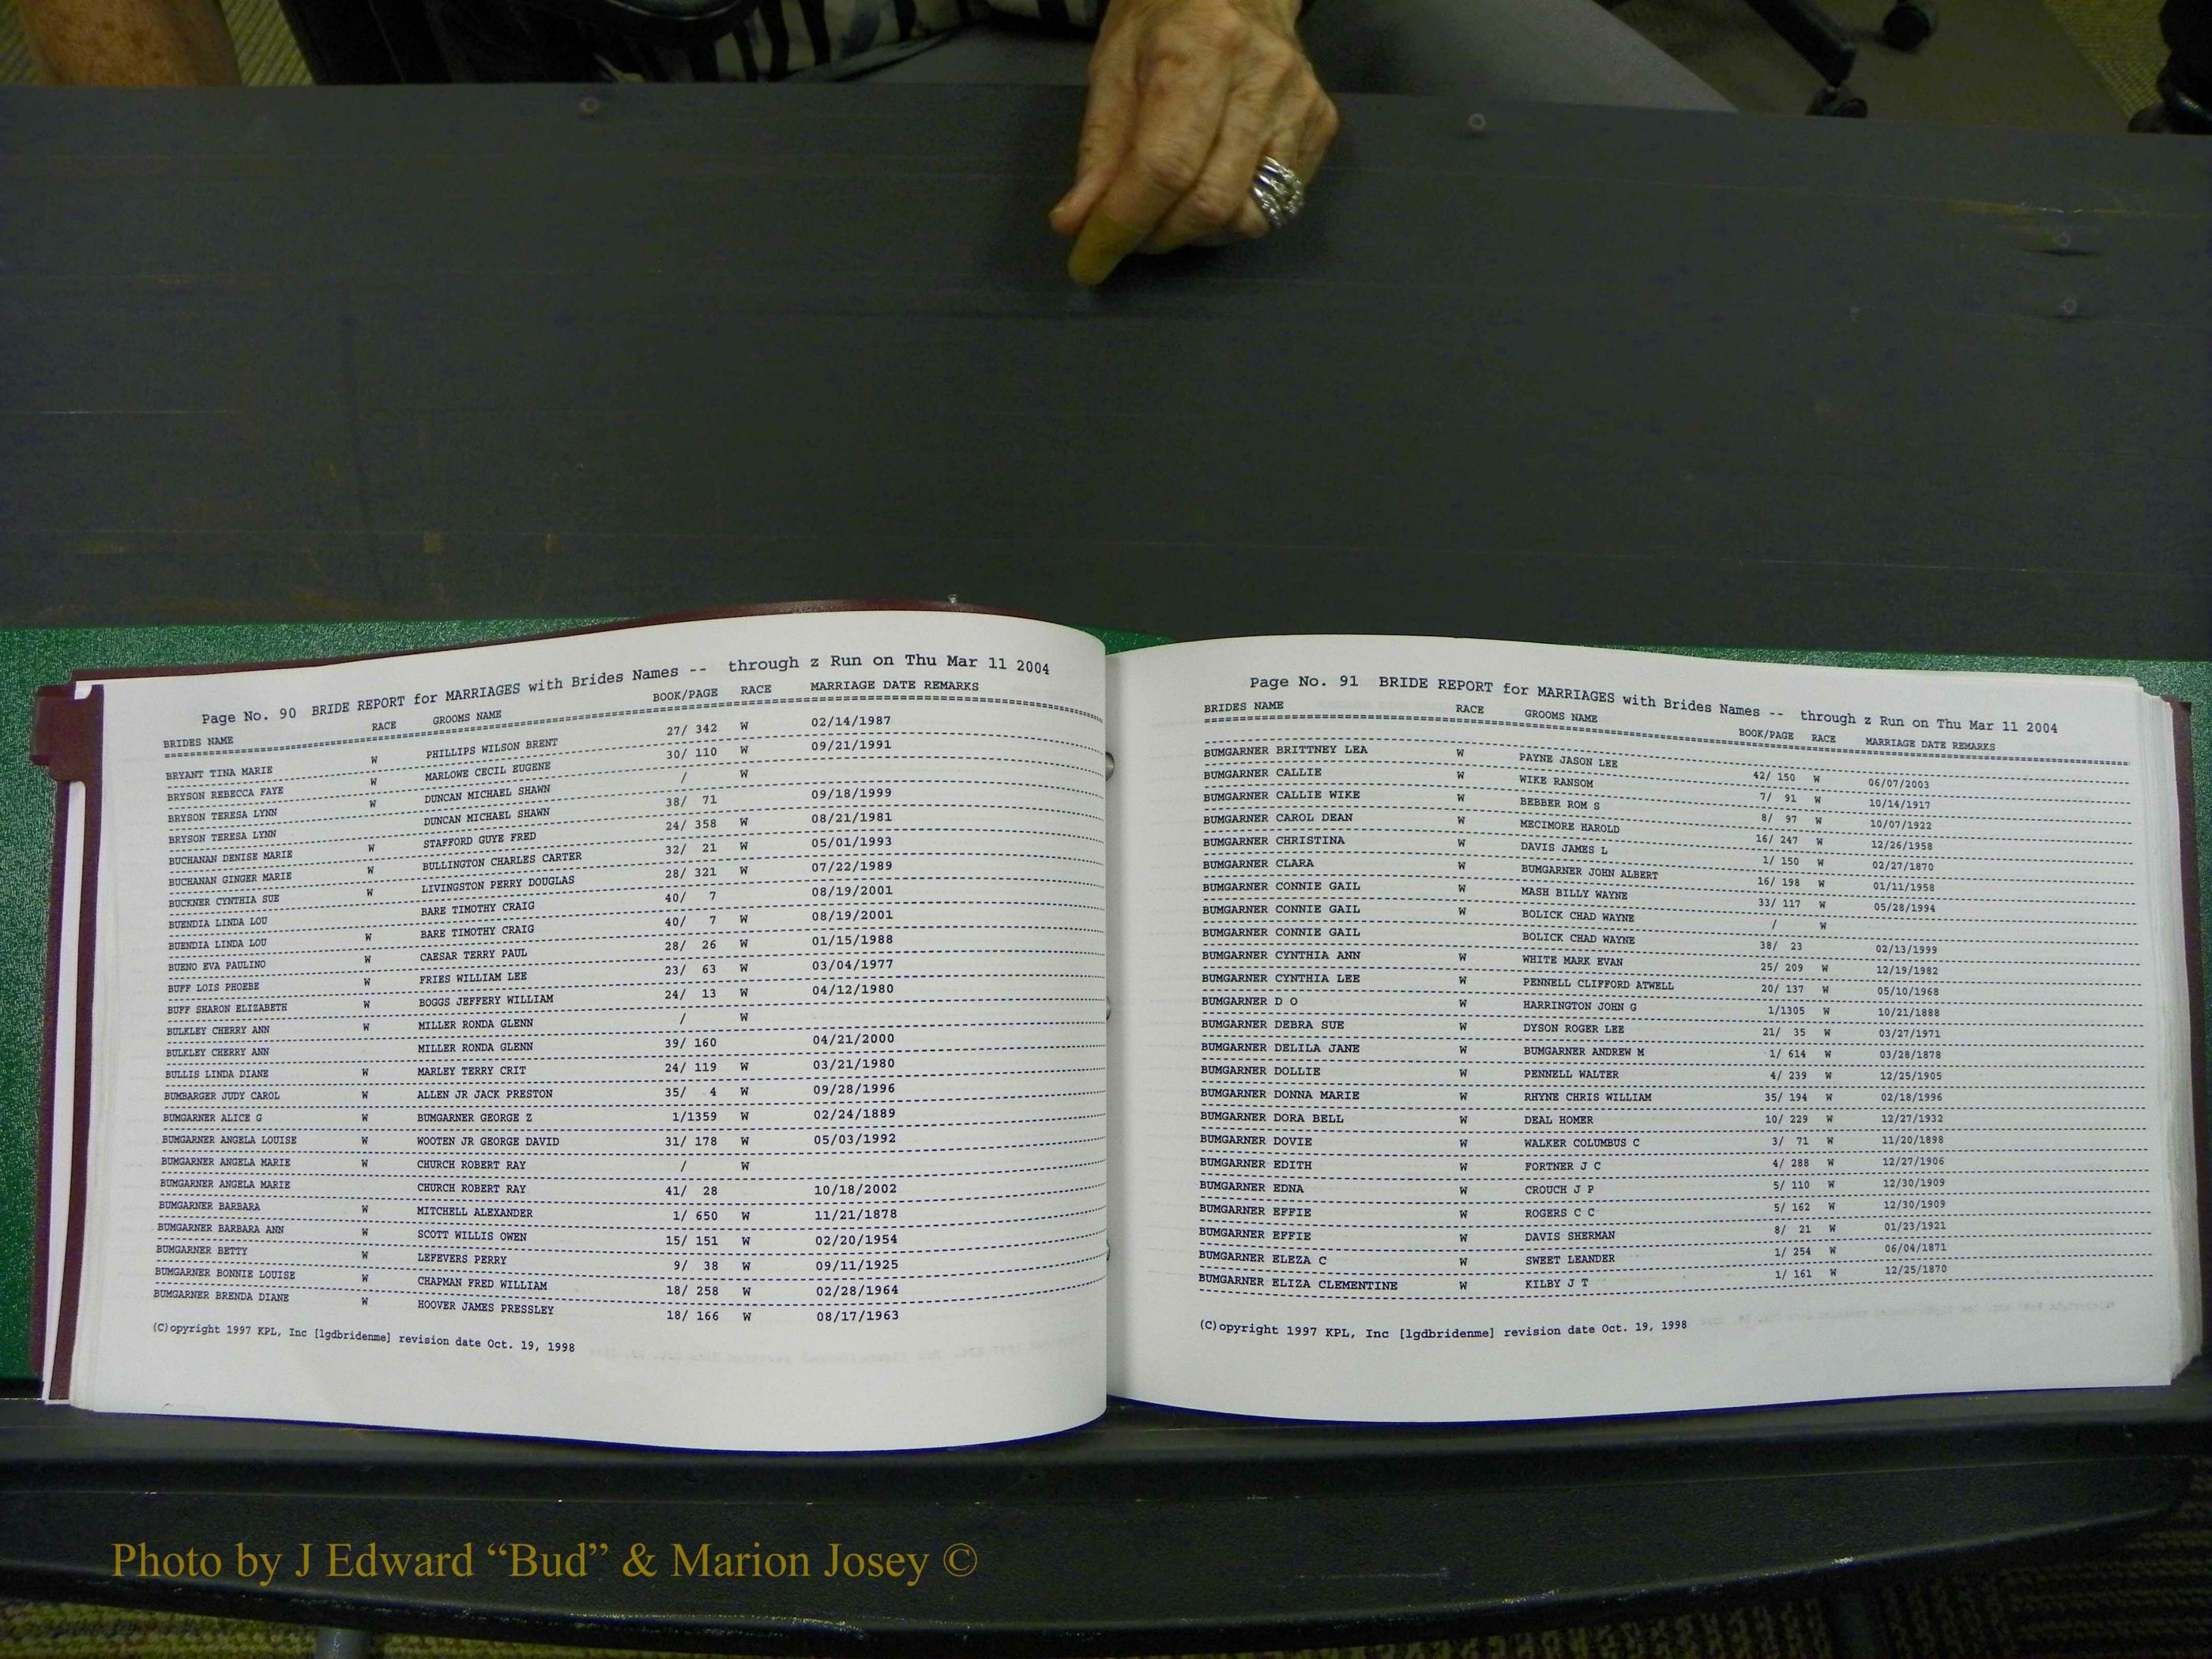 Page No. 90 BRIDE REPORT for MARRIAGES with Brides Names -- through z Run on Thu Mar 11 2004
BRIDES NAME RACE GROOMS NAME BOOK/PAGE RACE MARRIAGE DATE REMARKS
BRYANT TINA MARIE W PHILLIPS WILSON BRENT 27/ 342 W 02/14/1987
BRYSON REBECCA FAYE W MARLOWE CECIL EUGENE 30/ 110 W 09/21/1991
BRYSON TERESA LYNN W DUNCAN MICHAEL SHAWN / W
BRYSON TERESA LYNN DUNCAN MICHAEL SHAWN 38/ 71 09/18/1999
BUCHANAN DENISE MARIE W STAFFORD GUYE FRED 24/ 358 W 08/21/1981
BUCHANAN GINGER MARIE W BULLINGTON CHARLES CARTER 32/ 21 W 05/01/1993
BUCKNER CYNTHIA SUE W LIVINGSTON PERRY DOUGLAS 28/ 321 W 07/22/1989
BUENDIA LINDA LOU BARE TIMOTHY CRAIG 40/ 7 08/19/2001
BUENDIA LINDA LOU W BARE TIMOTHY CRAIG 40/ 7 W 08/19/2001
BUENO EVA PAULINO W CAESAR TERRY PAUL 28/ 26 W 01/15/1988
BUFF LOIS PHOEBE W FRIES WILLIAM LEE 23/ 63 W 03/04/1977
BUFF SHARON ELIZABETH W BOGGS JEFFERY WILLIAM 24/ 13 W 04/12/1980
BULKLEY CHERRY ANN W MILLER RONDA GLENN / W
BULKLEY CHERRY ANN MILLER RONDA GLENN 39/ 160 04/21/2000
BULLIS LINDA DIANE W MARLEY TERRY CRIT 24/ 119 W 03/21/1980
BUMBARGER JUDY CAROL W ALLEN JR JACK PRESTON 35/ 4 W 09/28/1996
BUMGARNER ALICE G W BUMGARNER GEORGE Z 1/1359 W 02/24/1889
BUMGARNER ANGELA LOUISE W WOOTEN JR GEORGE DAVID 31/ 178 W 05/03/1992
BUMGARNER ANGELA MARIE W CHURCH ROBERT RAY / W
BUMGARNER ANGELA MARIE CHURCH ROBERT RAY 41/ 28 10/18/2002
BUMGARNER BARBARA W MITCHELL ALEXANDER 1/ 650 W 11/21/1878
BUMGARNER BARBARA ANN W SCOTT WILLIS OWEN 15/ 151 W 02/20/1954
BUMGARNER BETTY W LEFEVERS PERRY 9/ 38 W 09/11/1925
BUMGARNER BONNIE LOUISE W CHAPMAN FRED WILLIAM 18/ 258 W 02/28/1964
BUMGARNER BRENDA DIANE W HOOVER JAMES PRESSLEY 18/ 166 W 08/17/1963
(C)opyright 1997 KPL, Inc [lgdbridenme] revision date Oct. 19, 1998
Page No. 91 BRIDE REPORT for MARRIAGES with Brides Names -- through z Run on Thu Mar 11 2004
BRIDES NAME RACE GROOMS NAME BOOK/PAGE RACE MARRIAGE DATE REMARKS
BUMGARNER BRITTNEY LEA W PAYNE JASON LEE 42/ 150 W 06/07/2003
BUMGARNER CALLIE W WIKE RANSOM 7/ 91 W 10/14/1917
BUMGARNER CALLIE WIKE W BEBBER ROM S 8/ 97 W 10/07/1922
BUMGARNER CAROL DEAN W MECIMORE HAROLD 16/ 247 W 12/26/1958
BUMGARNER CHRISTINA W DAVIS JAMES L 1/ 150 W 02/27/1870
BUMGARNER CLARA W BUMGARNER JOHN ALBERT 16/ 198 W 01/11/1958
BUMGARNER CONNIE GAIL W MASH BILLY WAYNE 33/ 117 W 05/28/1994
BUMGARNER CONNIE GAIL W BOLICK CHAD WAYNE / W
BUMGARNER CONNIE GAIL BOLICK CHAD WAYNE 38/ 23 02/13/1999
BUMGARNER CYNTHIA ANN W WHITE MARK EVAN 25/ 209 W 12/19/1982
BUMGARNER CYNTHIA LEE W PENNELL CLIFFORD ATWELL 20/ 137 W 05/10/1968
BUMGARNER D O W HARRINGTON JOHN G 1/1305 W 10/21/1888
BUMGARNER DEBRA SUE W DYSON ROGER LEE 21/ 35 W 03/27/1971
BUMGARNER DELILA JANE W BUMGARNER ANDREW M 1/ 614 W 03/28/1878
BUMGARNER DOLLIE W PENNELL WALTER 4/ 239 W 12/25/1905
BUMGARNER DONNA MARIE W RHYNE CHRIS WILLIAM 35/ 194 W 02/18/1996
BUMGARNER DORA BELL W DEAL HOMER 10/ 229 W 12/27/1932
BUMGARNER DOVIE W WALKER COLUMBUS C 3/ 71 W 11/20/1898
BUMGARNER EDITH W FORTNER J C 4/ 288 W 12/27/1906
BUMGARNER EDNA W CROUCH J P 5/ 110 W 12/30/1909
BUMGARNER EFFIE W ROGERS C C 5/ 162 W 12/30/1909
BUMGARNER EFFIE W DAVIS SHERMAN 8/ 21 W 01/23/1921
BUMGARNER ELEZA C W SWEET LEANDER 1/ 254 W 06/04/1871
BUMGARNER ELIZA CLEMENTINE W KILBY J T 1/ 161 W 12/25/1870
(C)opyright 1997 KPL, Inc [lgdbridenme] revision date Oct. 19, 1998
Photo by J Edward “Bud” & Marion Josey ©